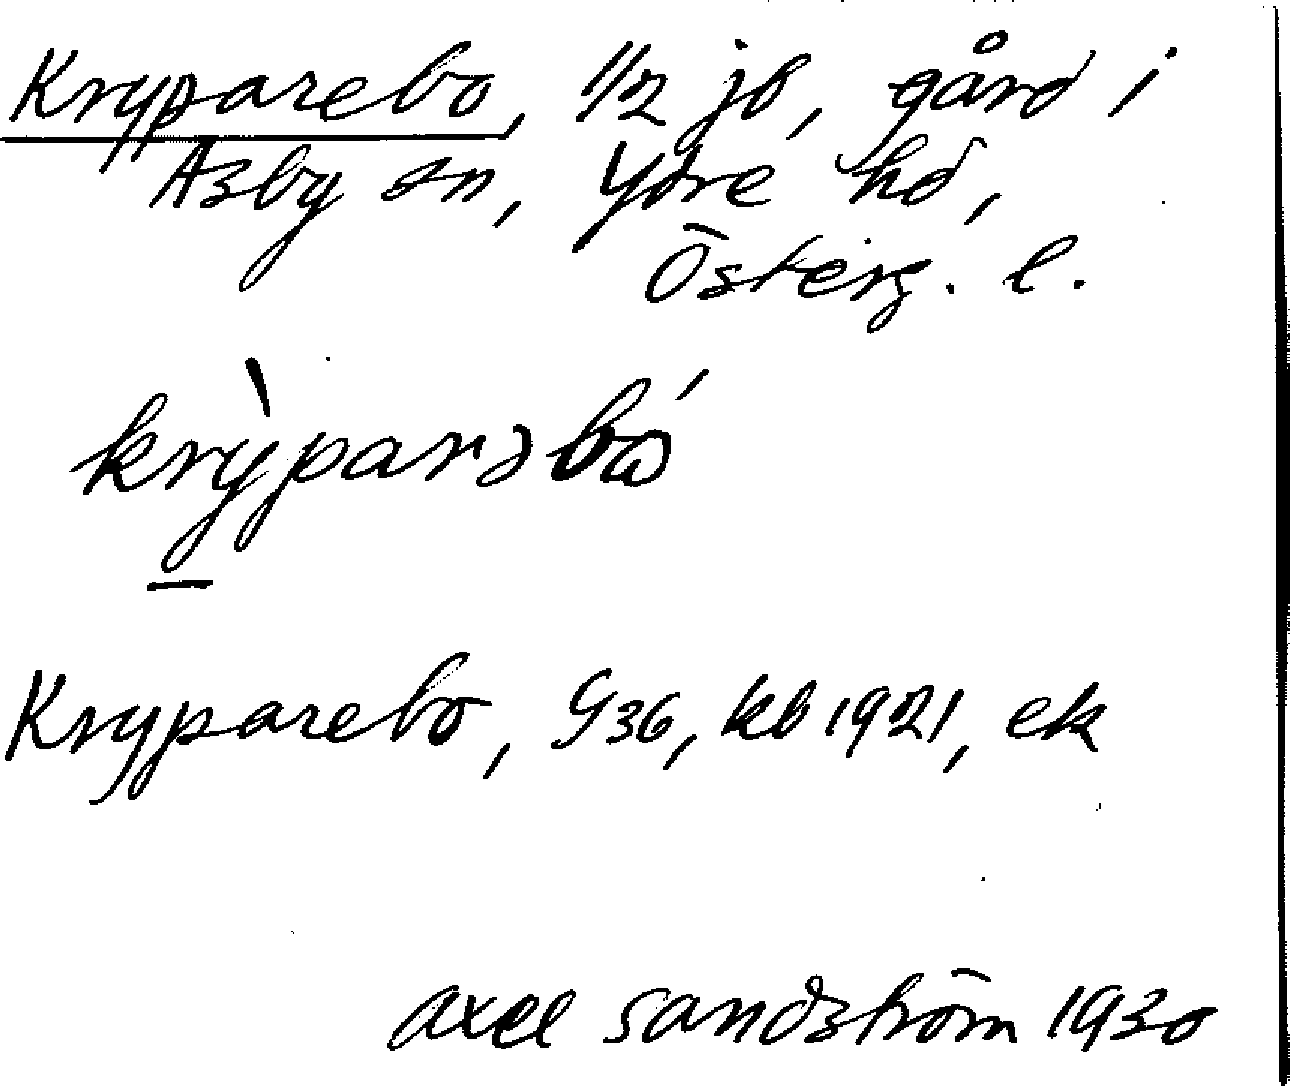 Kryparebo, 1/2 jb, gård i
Asby sn, Ydre hd,
Österg. l.
krỳparəbó
Kryparebo, G36, kb 1921, ek
axel sandström 1930